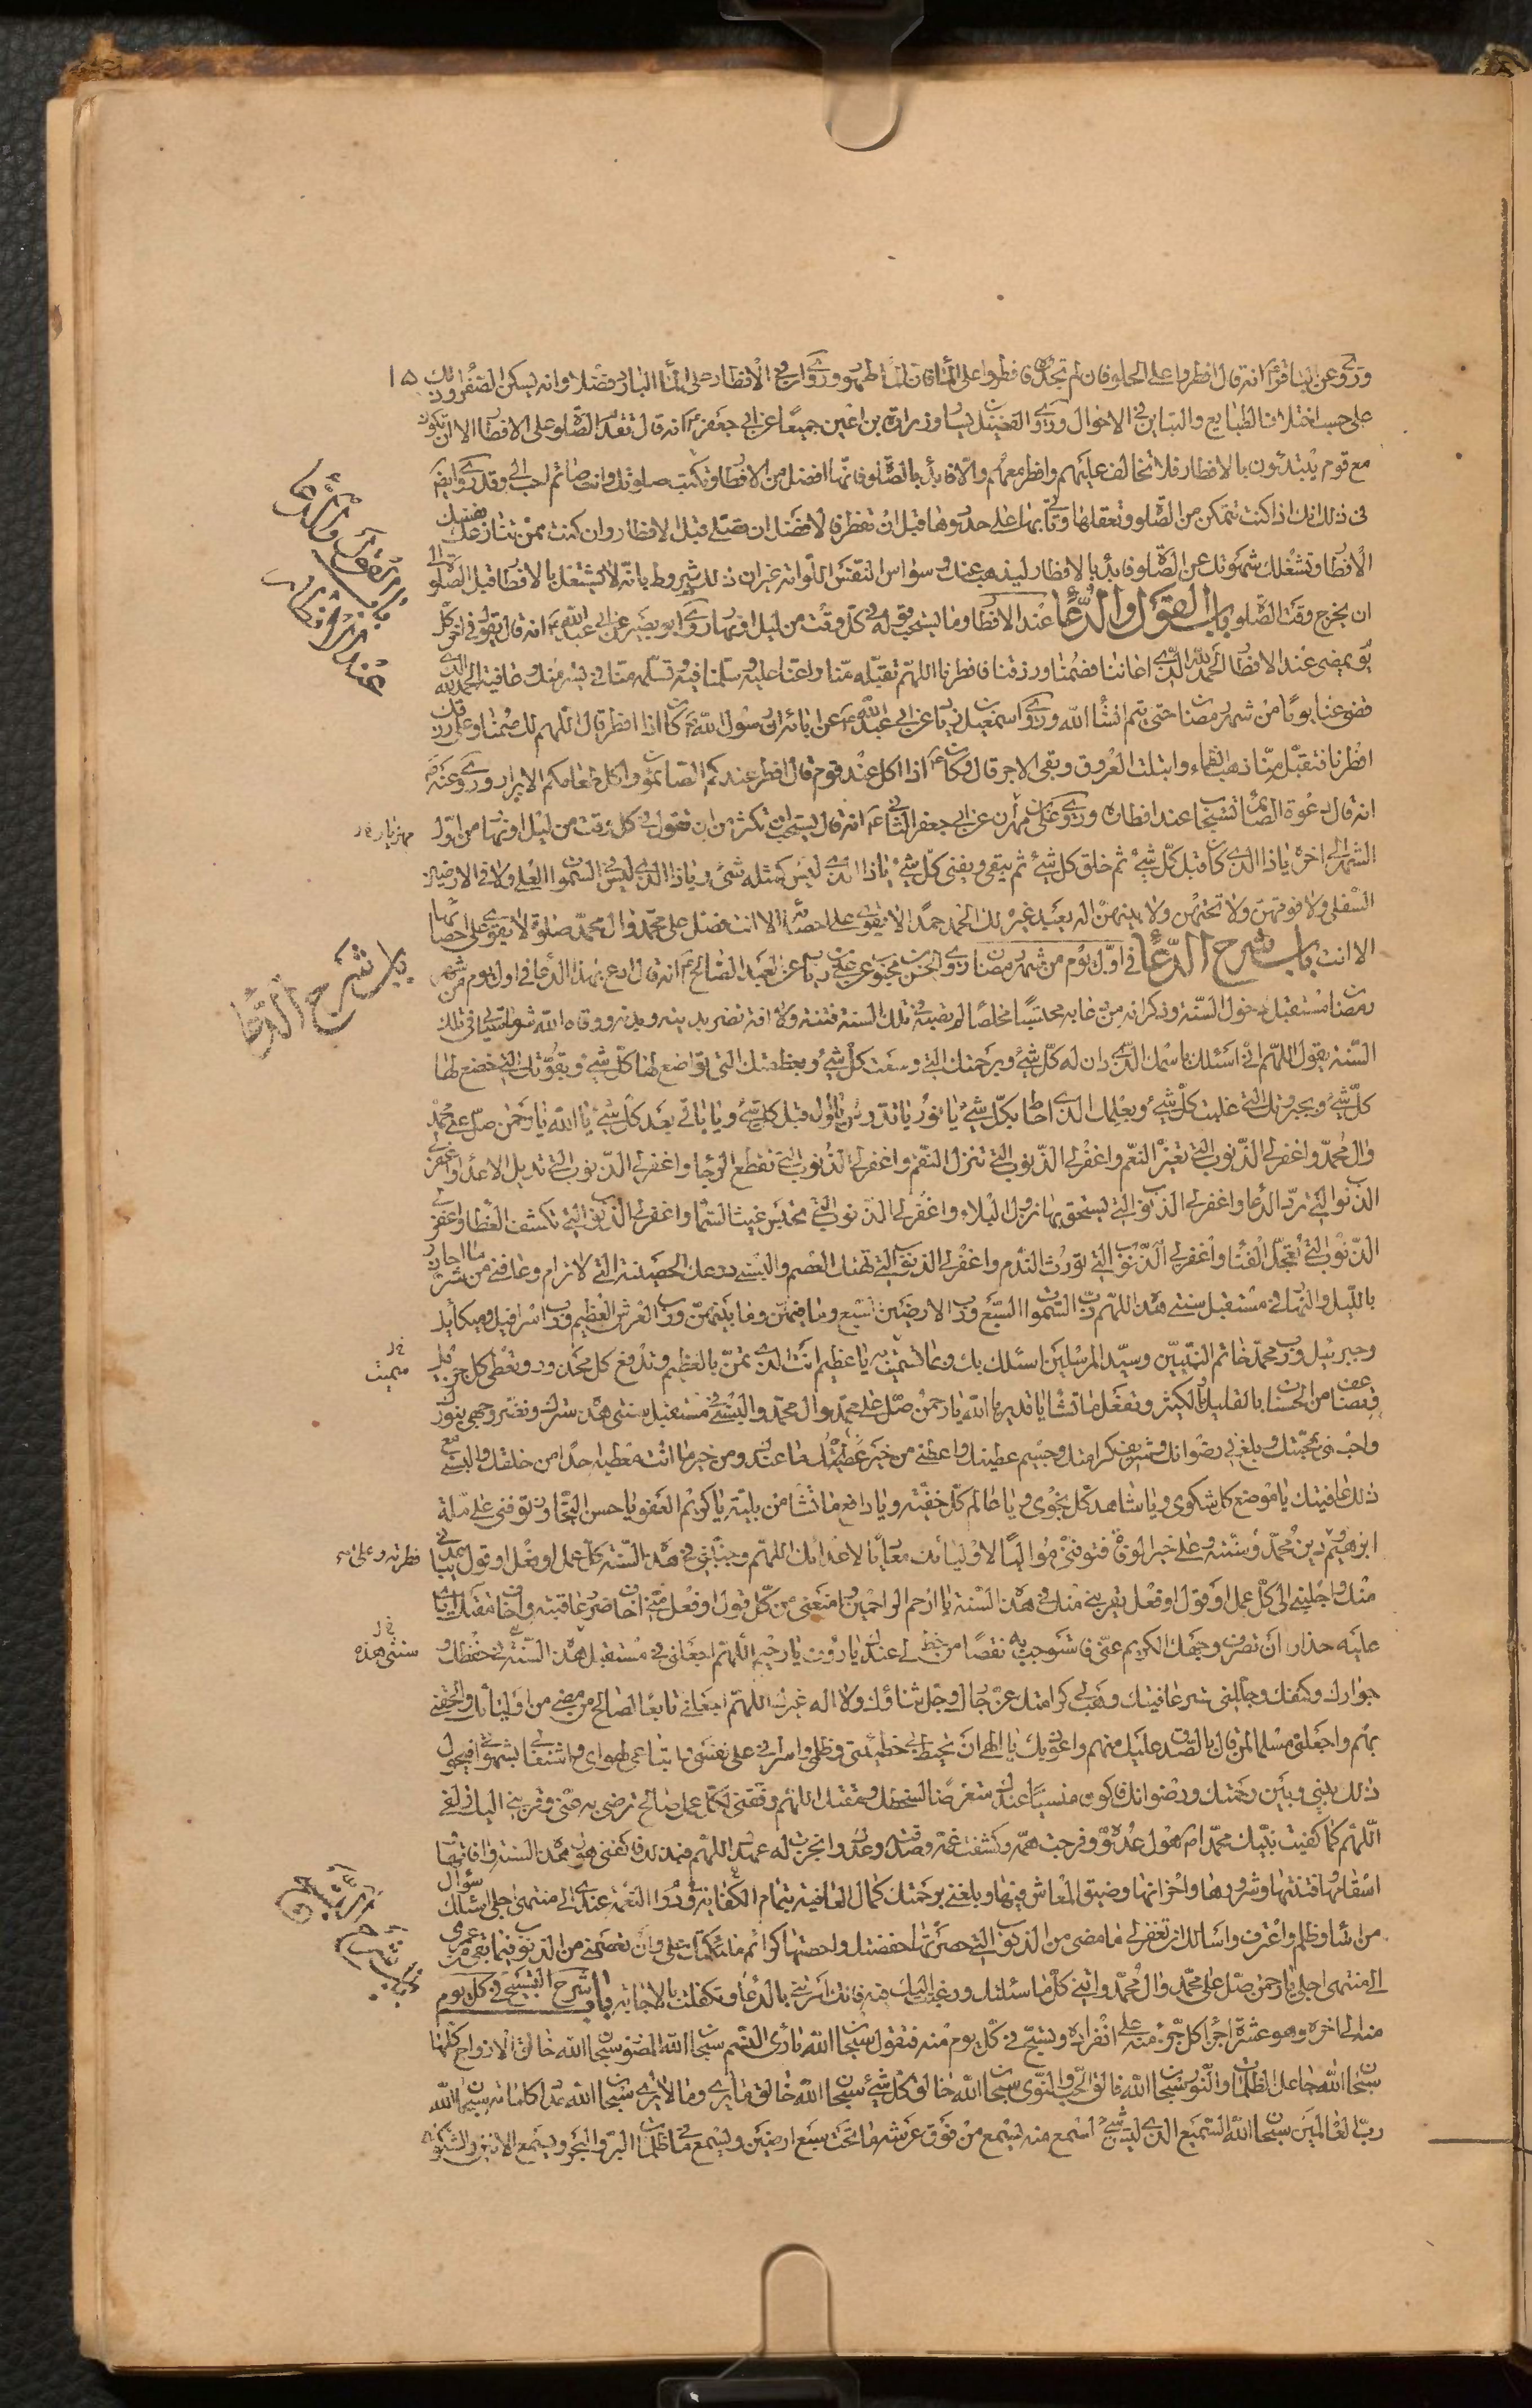 وروى عن الباقر ع انه قال افطروا على الحلو فان لم تجدوه فافطروا على الماء فان الماء طهور وروى ان فى الافطار على الماء البارد فضلا وانه يسكن الصفراء وذلك
على حسب اختلاف الطبايع والتباين فى الاحوال وروى الفضيل بن يسار وزرارة بن اعين جميعا عن ابى جعفر ع انه قال تقدم الصلوة على الافطار الا ان تكون
مع قوم يبتدئون بالافطار فلا تخالف عليهم وافطر معهم والا فابدأ بالصلوة فانها افضل من الافطار وتكتب صلوتك وانت صائم احب الى وقد روى ايضا
فى ذلك انك اذا كنت تتمكن من الصلوة وتعقلها وتأتى بها على حدودها قبل ان تفطر فالافضل ان تصلى قبل الافطار وان كنت ممن تنازعك نفسك
الافطار وتشغلك شهوتك عن الصلوة فابدأ بالافطار ليذهب عنك وسواس النفس اللوامة غير ان ذلك مشروط بانه لا يشتغل بالافطار قبل الصلوة الى
ان يخرج وقت الصلوة باب القول والدعاء عند الافطار وما يستحب قوله فى كل وقت من ليل او نهار روى ابو بصير عن ابى عبد الله ع انه قال يقول فى اخر كل
يوم يمضى عند الافطار الحمد لله الذى اعاننا فصمنا ورزقنا فافطرنا اللهم تقبله منا واعنا عليه وسلمنا فيه وتسلمه منا فى يسر منك وعافية الحمد لله الذى
قضى عنا يوما من شهر رمضان حتى يتم انشاء الله وروى اسمعيل بن زياد عن ابى عبد الله ع عن ابائه ان رسول الله ص كان اذا افطر قال اللهم لك صمنا وعلى رزقك
افطرنا فتقبل منا ذهب الظماء وابتلت العروق وبقى الاجر قال وكان ع اذا اكل عند قوم قال افطر عندكم الصائمون واكل طعامكم الابرار وروى عنه ص
انه قال دعوة الصائم تستجاب عند افطاره وروى على بن مهران عن ابى جعفر الثانى ع انه قال يستحب ان تكثر من ان تقول فى كل وقت من ليل او نهار من اول
مهزيار
الشهر الى اخره يا ذا الذى كان قبل كل شئ ثم خلق كل شئ ثم يبقى ويفنى كل شئ يا ذا الذى ليس كمثله شئ ويا ذا الذى ليس فى السموات العلى ولا فى الارضين
السفلى ولا فوقهن ولا تحتهن ولا بينهن اله يعبد غيره لك الحمد حمدا لا يقوى على احصائه الا انت فصل على محمد وال محمد صلوة لا يقوى على احصائها
الا انت باب شرح الدعاء فى اول يوم من شهر رمضان روى الحسن بن محبوب عن على بن رئاب عن العبد الصالح ع انه قال ادع بهذا الدعاء فى اول يوم من شهر
رمضان مستقبل دخول السنة وذكر انه من دعا به محتسبا مخلصا لم تصبه فى تلك السنة فتنة ولا افة تضر بدينه وبدنه ووقاه الله شر ما يأتى فى تلك
السنة يقول اللهم انى اسئلك باسمك الذى دان له كل شئ وبرحمتك التى وسعت كل شئ وبعظمتك التى تواضع لها كل شئ وبقوتك التى خضع لها
كل شئ وبجبروتك التى غلبت كل شئ وبعلمك الذى احاط بكل شئ يا نور يا قدوس يا اول قبل كل شئ ويا باقى بعد كل شئ يا الله يا رحمن صل على محمد
وال محمد واغفر لى الذنوب التى تغير النعم واغفر لى الذنوب التى تنزل النقم واغفر لى الذنوب التى تقطع الرجاء واغفر لى الذنوب التى تديل الاعداء واغفر لى
الذنوب التى ترد الدعاء واغفر لى الذنوب التى يستحق بها نزول البلاء واغفر لى الذنوب التى تحبس غيث السماء واغفر لى الذنوب التى تكشف الغطاء واغفر لى
الذنوب التى تعجل الفناء واغفر لى الذنوب التى تورث الندم واغفر لى الذنوب التى تهتك العصم والبسنى درعك الحصينة التى لا ترام وعافنى من شر ما احاذر
بالليل والنهار فى مستقبل سنتى هذه اللهم رب السموات السبع ورب الارضين السبع وما فيهن وما بينهن ورب العرش العظيم ورب اسرافيل وميكائيل
وجبرئيل ورب محمد خاتم النبيين وسيد المرسلين اسئلك بك وبما تسميت به يا عظيم انت الذى تمن بالعظيم وتدفع كل محذور وتعطى كل جزيل
سميت
وتضاعف من الحسنات بالقليل والكثير وتفعل ما تشاء يا قدير يا الله يا رحمن صل على محمد وال محمد والبسنى فى مستقبل سنتى هذه سترك ونضر وجهى بنورك
واحبنى بمحبتك وبلغ بى رضوانك وشريف كرامتك وجسيم عطيتك واعطنى من خير ما عندك ومن خير ما انت معطيه احدا من خلقك والبسنى مع
ذلك عافيتك يا موضع كل شكوى ويا شاهد كل نجوى ويا عالم كل خفية ويا دافع ما تشاء من بلية يا كريم العفو يا حسن التجاوز توفنى على ملة
ابرهيم ودين محمد وسنته وعلى خير الوفاة فتوفنى مواليا لاوليائك معاديا لاعدائك اللهم وجنبنى فى هذه السنة كل عمل او فعل او قول يباعدنى
فطرته وعلى
منك واجلبنى الى كل عمل او قول او فعل يقربنى منك فى هذه السنة يا ارحم الراحمين وامنعنى من كل قول او فعل منى اخاف ضرر عاقبته واخاف مقتك اياى
عليه حذار ان تصرف وجهك الكريم عنى فاستوجب به نقصا من حظ لى عندك يا رؤف يا رحيم اللهم اجعلنى فى مستقبل هذه السنة فى حفظك و
سنتى هذه
جوارك وكنفك وجللنى ستر عافيتك وهب لى كرامتك عز جارك وجل ثناؤك ولا اله غيرك اللهم اجعلنى تابعا لصالح من مضى من اوليائك والحقنى
بهم واجعلنى مسلما لمن قال بالصدق عليك منهم واعوذ بك يا الهى ان تحيط بى خطيئتى وظلمى واسرافى على نفسى واتباعى لهواى واشتغالى بشهوتى فيحول
ذلك بينى وبين رحمتك ورضوانك فاكون منسيا عندك متعرضا لسخطك ونقمتك اللهم وفقنى لكل عمل صالح ترضى به عنى وقربنى اليك زلفى
اللهم كما كفيت نبيك محمدا ص هول عدوه وفرجت همه وكشفت غمه وصدقته وعدك وانجزت له عهدك اللهم فبذلك فاكفنى هول هذه السنة وافاتها
اسقامها وفتنتها وشرورها واحزانها وضيق المعاش فيها وبلغنى برحمتك كمال العافية بتمام دوام النعمة عندى الى منتهى اجلى اسئلك سؤال
من اساء وظلم واعترف واسألك ان تغفر لى ما مضى من الذنوب التى حصرتها حفظتك واحصتها كرام ملائكتك على وان تعصمنى من الذنوب فيما بقى من عمرى
الى منتهى اجلى يا رحمن صل على محمد وال محمد واتنى كل ما سئلتك ورغبت اليك فيه فانك امرتنى بالدعاء وتكفلت بالاجابة باب شرح التسبيح فى كل يوم
منه الى اخره وهو عشرة اجزاء كل جزء منه على انفراده وتسبح فى كل يوم منه فتقول سبحان الله بارئ النسم سبحان الله المصور سبحان الله خالق الازواج كلها
سبحان الله جاعل الظلمات والنور سبحان الله فالق الحب والنوى سبحان الله خالق كل شئ سبحان الله خالق ما يرى وما لا يرى سبحان الله مداد كلماته سبحان الله
رب العالمين سبحان الله السميع الذى ليس شئ اسمع منه يسمع من فوق عرشه ما تحت سبع ارضين ويسمع ما فى ظلمات البر والبحر ويسمع الانين والشكوى
باب القول والدعاء
عند الافطار
باب شرح الدعاء
باب شرح التسبيح